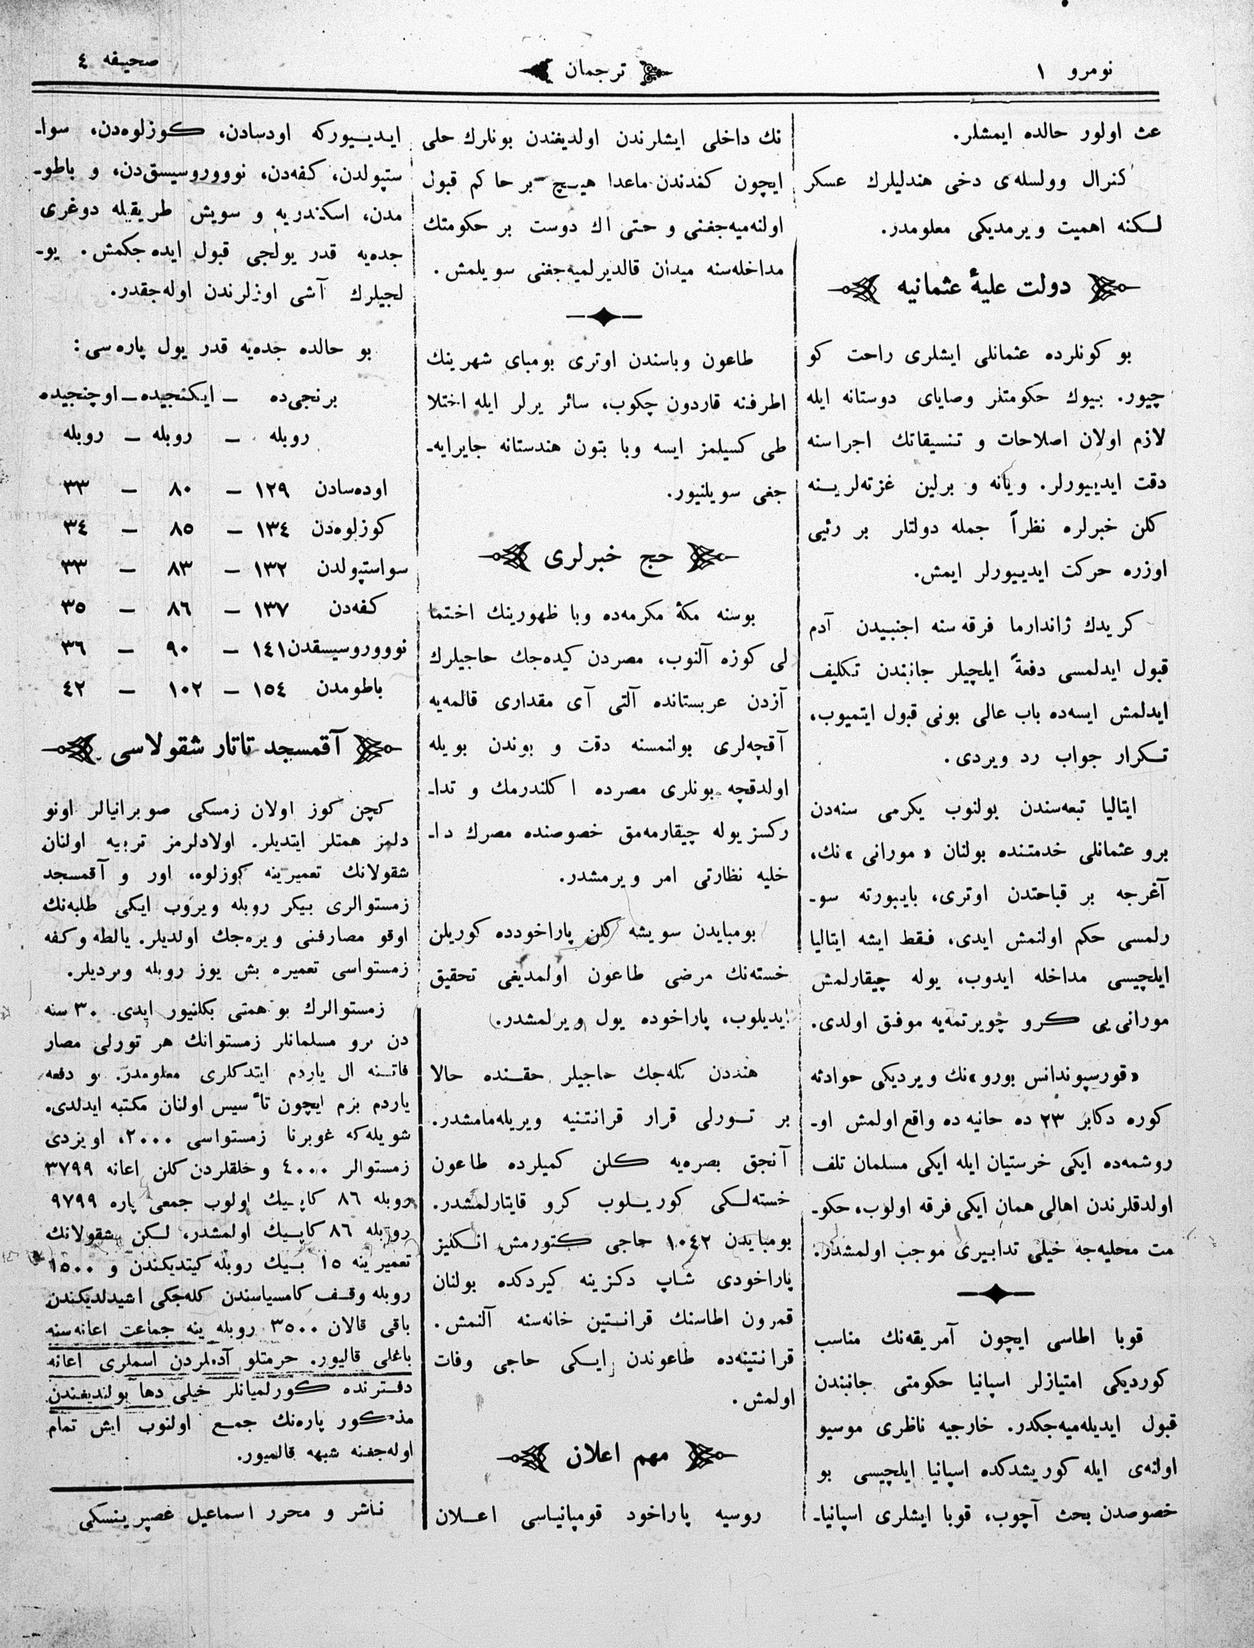 نومرو ١
ترجمان
صحيفه ٤
عث اولور حالده ايمشلر.
كنرال وولسله‌ى دخى هندليلرك عسكر
لكنه اهميت ويرمديكى معلومدر.
دولت عليهٔ عثمانيه
بو كونلرده عثمانلى ايشلرى راحت كو
چيور. بيوك حكومتلر وصاياى دوستانه ايله
لازم اولان اصلاحات و تنسيقاتك اجراسنه
دقت ايدييورلر. ويانه و برلين غزته‌لرينه
كلن خبرلره نظراً جمله دولتلر بر رئيى
اوزره حركت ايدييورلر ايمش.
كريدك ژاندارما فرقه‌سنه اجنبيدن آدم
قبول ايدلمسى دفعةً ايلچيلر جانبندن تكليف
ايدلمش ايسه‌ده باب عالى بونى قبول ايتميوب،
تكرار جواب رد ويردى.
ايتاليا تبعه‌سندن بولنوب يكرمى سنه‌دن
برو عثمانلى خدمتنده بولنان «مورانى» نك،
آغرجه بر قباحتدن اوترى، بايبورته سو-
رلمسى حكم اولنمش ايدى، فقط ايشه ايتاليا
ايلچيسى مداخله ايدوب، يوله چيقارلمش
مورانى‌يى كرو چويرتمه‌يه موفق اولدى.
«قورسپوندانس بورو»نك ويرديكى حوادثه
كوره دكابر ٢٣ ده حانيه ده واقع اولمش او-
روشمه‌ده ايكى خرستيان ايله ايكى مسلمان تلف
اولدقلرندن اهالى همان ايكى فرقه اولوب، حكو-
مت محليه‌جه خيلى تدابيرى موجب اولمشدر.
قوبا اطاسى ايچون آمريقه‌نك مناسب
كورديكى امتيازلر اسپانيا حكومتى جانبندن
قبول ايديله‌ميه‌جكدر. خارجيه ناظرى موسيو
اولنه‌ى ايله كوريشدكده اسپانيا ايلچيسى بو
خصوصدن بحث آچوب، قوبا ايشلرى اسپانيا-
نك داخلى ايشلرندن اولديغندن بونلرك حلى
ايچون كندندن ماعدا هيچ بر حاكم قبول
اولنه‌ميه‌جغنى و حتى اك دوست بر حكومتك
مداخله‌سنه ميدان قالديرلميه‌جغنى سويلمش.
طاعون وباسندن اوترى بومباى شهرينك
اطرفنه قاردون چكوب، سائر يرلر ايله اختلا
طى كسيلمز ايسه وبا بتون هندستانه جايرايه-
جغى سويلنيور.
حج خبرلرى
بوسنه مكهٔ مكرمه‌ده وبا ظهورينك اختما
لى كوزه آلنوب، مصردن كيده‌جك حاجيلرك
آزدن عربستانده آلتى آى مقدارى قالمه‌يه
آقچه‌لرى بولنمسنه دقت و بوندن بويله
اولدقچه بونلرى مصرده اكلندرمك و تدا-
ركسز يوله چيقارمه‌مق خصوصنده مصرك دا-
خليه نظارتى امر ويرمشدر.
بومبايدن سويشه كلن پاراخودده كوريلن
خسته‌نك مرضى طاعون اولمديغى تحقيق
ايديلوب، پاراخوده يول ويرلمشدر.
هنددن كله‌جك حاجيلر حقنده حالا
بر تورلى قرار قرانتنيه ويريله‌مامشدر.
آنجق بصره‌يه كلن كميلرده طاعون
خسته‌لكى كوريلوب كرو قايتارلمشدر.
بومبايدن ١٠٤٢ حاجى كتورمش انكليز
پاراخودى شاپ دكزينه كيردكده بولنان
قمرون اطاسنك قرانتين خانه‌سنه آلنمش.
قرانتينه‌ده طاعوندن ايكى حاجى وفات
اولمش.
مهم اعلان
روسيه پاراخود قومپانياسى اعلان
ايدييوركه اودسادن، كوزلوه‌دن، سوا-
ستپولدن، كفه‌دن، نوووروسيسق‌دن، و باطو-
مدن، اسكندريه و سويش طريقيله دوغرى
جده‌يه قدر يولجى قبول ايده‌جكمش. يو-
لجيلرك آشى اوزلرندن اوله‌جقدر.
بو حالده جده‌يه قدر يول پاره‌سى:
برنجى‌ده – ايكنجيده – اوچنجيده
روبله – روبله – روبله
اوده‌سادن ١٢٩ – ٨٠ – ٣٣
كوزلوه‌دن ١٣٤ – ٨٥ – ٣٤
سواستپولدن ١٣٢ – ٨٣ – ٣٣
كفه‌دن ١٣٧ – ٨٦ – ٣٥
نوووروسيسقدن ١٤١ – ٩٠ – ٣٦
باطومدن ١٥٤ – ١٠٢ – ٤٢
آقمسجد تاتار شقولاسى
كچن كوز اولان زمسكى صوبرانيالر اونو
دلمز همتلر ايتديلر. اولادلرمز تربيه اولنان
شقولانك تعميرينه كوزلوه، اور و آقمسجد
زمستوالرى بيكر روبله ويروب ايكى طلبه‌نك
اوقو مصارفنى ويره‌جك اولديلر. يالطه وكفه
زمستواسى تعميره بش يوز روبله ويرديلر.
زمستوالرك بو همتى بكلنيور ايدى. ٣٠ سنه
دن برو مسلمانلر زمستوانك هر تورلى مصار
فاتنه ال ياردم ايتدكلرى معلومدر. بو دفعه
ياردم بزم ايچون تأسيس اولنان مكتبه ايدلدى.
شويله‌كه غوبرنا زمستواسى ٢٠٠٠، اويزدى
زمستوالر ٤٠٠٠ و خلقلردن كلن اعانه ٣٧٩٩
روبله ٨٦ كاپيك اولوب جمعى پاره ٩٧٩٩
روبله ٨٦ كاپيك اولمشدر، لكن شقولانك
تعميرينه ١٥ بيك روبله كيتديكندن و ١٥٠٠
روبله وقف كامسياسندن كله‌جكى اشيدلديكندن
باقى قالان ٣٥٠٠ روبله ينه جماعت اعانه‌سنه
باغلى قاليور. حرمتلو آدملردن اسملرى اعانه
دفترنده كورلميانلر خيلى دها بولنديغندن
مذكور پاره‌نك جمع اولنوب ايش تمام
اوله‌جغنه شبهه قالميور.
ناشر و محرر اسماعيل غصپرينسكى